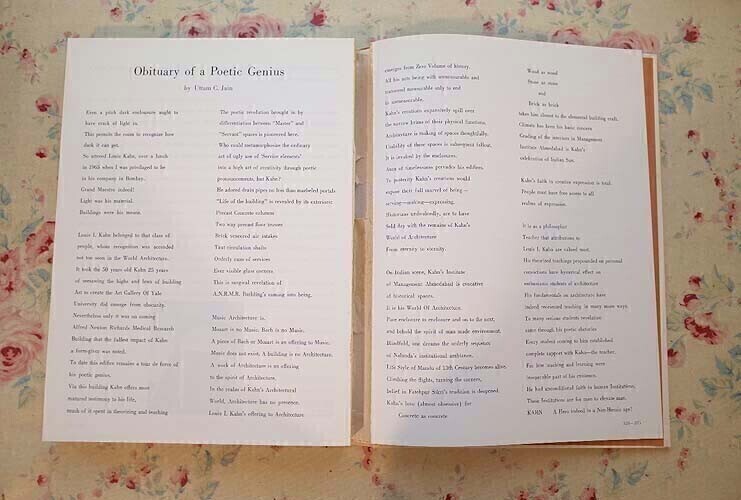 Obituary of a Poetic Genius
by Uttam C. Jain
Even a pitch dark enclosure ought to
have crack of light in
This permits the room to recognize how
dark it can get.
So uttered Louis Kahn, over a lunch
in 1963 when I was privileged to be
in his company in Bombay.
Grand Maestro indeed!
Light was his material.
Buildings were his means.
Louis I. Kahn belonged to that class of
people, whose recognition was accorded
not too soon in the World Architecture.
It took the 50 years old Kahn 25 years
of measuring the highs and lows of building
Art to create the Art Gallery Of Yale
University did emerge from obscurity.
Nevertheless only it was on coming
Alfred Newton Richards Medical Research
Building that the fullest impact of Kahn
a form-giver was noted.
To date this edifice remains a tour de force of
his poetic genius.
Via this building Kahn offers most
matured testimony to his life,
much of it spent in theorizing and teaching
The poetic revolution brought in by
differentiation between "Master" and
"Servant" spaces is pioneered here.
Who could metamorphosise the ordinary
art of ugly use of 'Service elements'
into a high art of creativity through poetic
pronouncements, but Kahn?
He adored drain pipes no less than marbeled portals
"Life of the building" is revealed by its exteriors:
Precast Concrete columns
Two way precast floor trusses
Brick veneered air intakes
Taut circulation shafts
Orderly runs of services
Ever visible glass corners
This is surgical revelation of
A.N.R.M.R. Building's coming into being.
Music Architecture is.
Mozart is no Music. Bach is no Music.
A piece of Bach or Mozart is an offering to Music.
Music does not exist. A building is no Architecture.
A work of Architecture is an offering
to the spirit of Architecture.
In the realm of Kahn's Architectural
World, Architecture has no presence.
Louis I. Kahn's offering to Architecture
emerges from Zero Volume of history.
All his acts being with unmeasurable and
transcend measurable only to end
in unmeasurable.
Kahn's creations expansively spill over
the narrow brims of their physical functions.
Architecture is making of spaces thoughtfully.
Usability of these spaces is subsequent fallout.
It is invoked by the enclosures.
Aura of timelessness pervades his edifices.
To posterity Kahn's creations would
expose their full marvel of being—
serving—making—expressing.
Historians undoubtedly, are to have
field day with the remains of Kahn's
World of Architecture
From eternity to eternity.
On Indian scene, Kahn's Institute
of Management Ahmedabad is evocative
of historical spaces.
It is his World Of Architecture.
Pure enclosure to enclosure and on to the next,
and behold the spirit of man made environment.
Blindfold, one dreams the orderly sequence
of Nalanda's institutional ambiance.
Life Style of Mandu of 13th Century becomes alive.
Climbing the flights, turning the corners,
belief in Fatehpur Sikri's tradition is deepened.
Kahn's love (almost obsessive) for
Concrete as concrete
Wood as wood
Stone as stone
and
Brick as brick
takes him closest to the elemental building craft.
Climate has been his basic concern
Grading of the interiors in Management
Institute Ahmedabad is Kahn's
celebration of Indian Sun.
Kahn's faith in creative expression is total.
People must have free access to all
realms of expression.
It is as a philosopher
Teacher that attributions to
Louis I. Kahn are valued most.
He theorized teachings propounded on personal
convictions have hysterical effect on
enthusiastic students of architecture
His fundamentals on architecture have
indeed reoriented teaching in many more ways.
To many serious students revelation
came through his poetic rhetorics
Every student coming to him established
complete rapport with Kahn—the teacher.
For him teaching and learning were
inseparable part of his existence.
He had unconditional faith in human Institutions.
These Institutions are for man to elevate man.
KAHN A Hero indeed in a Non-Heroic age!